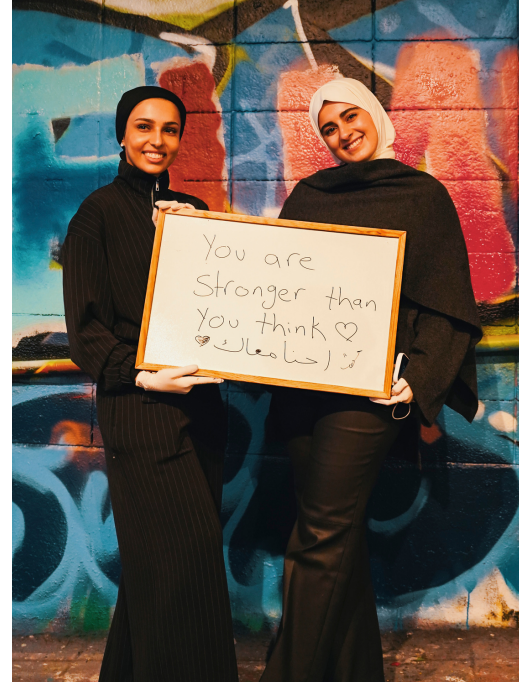 You are
Stronger than
You think ♡
احنا معاك